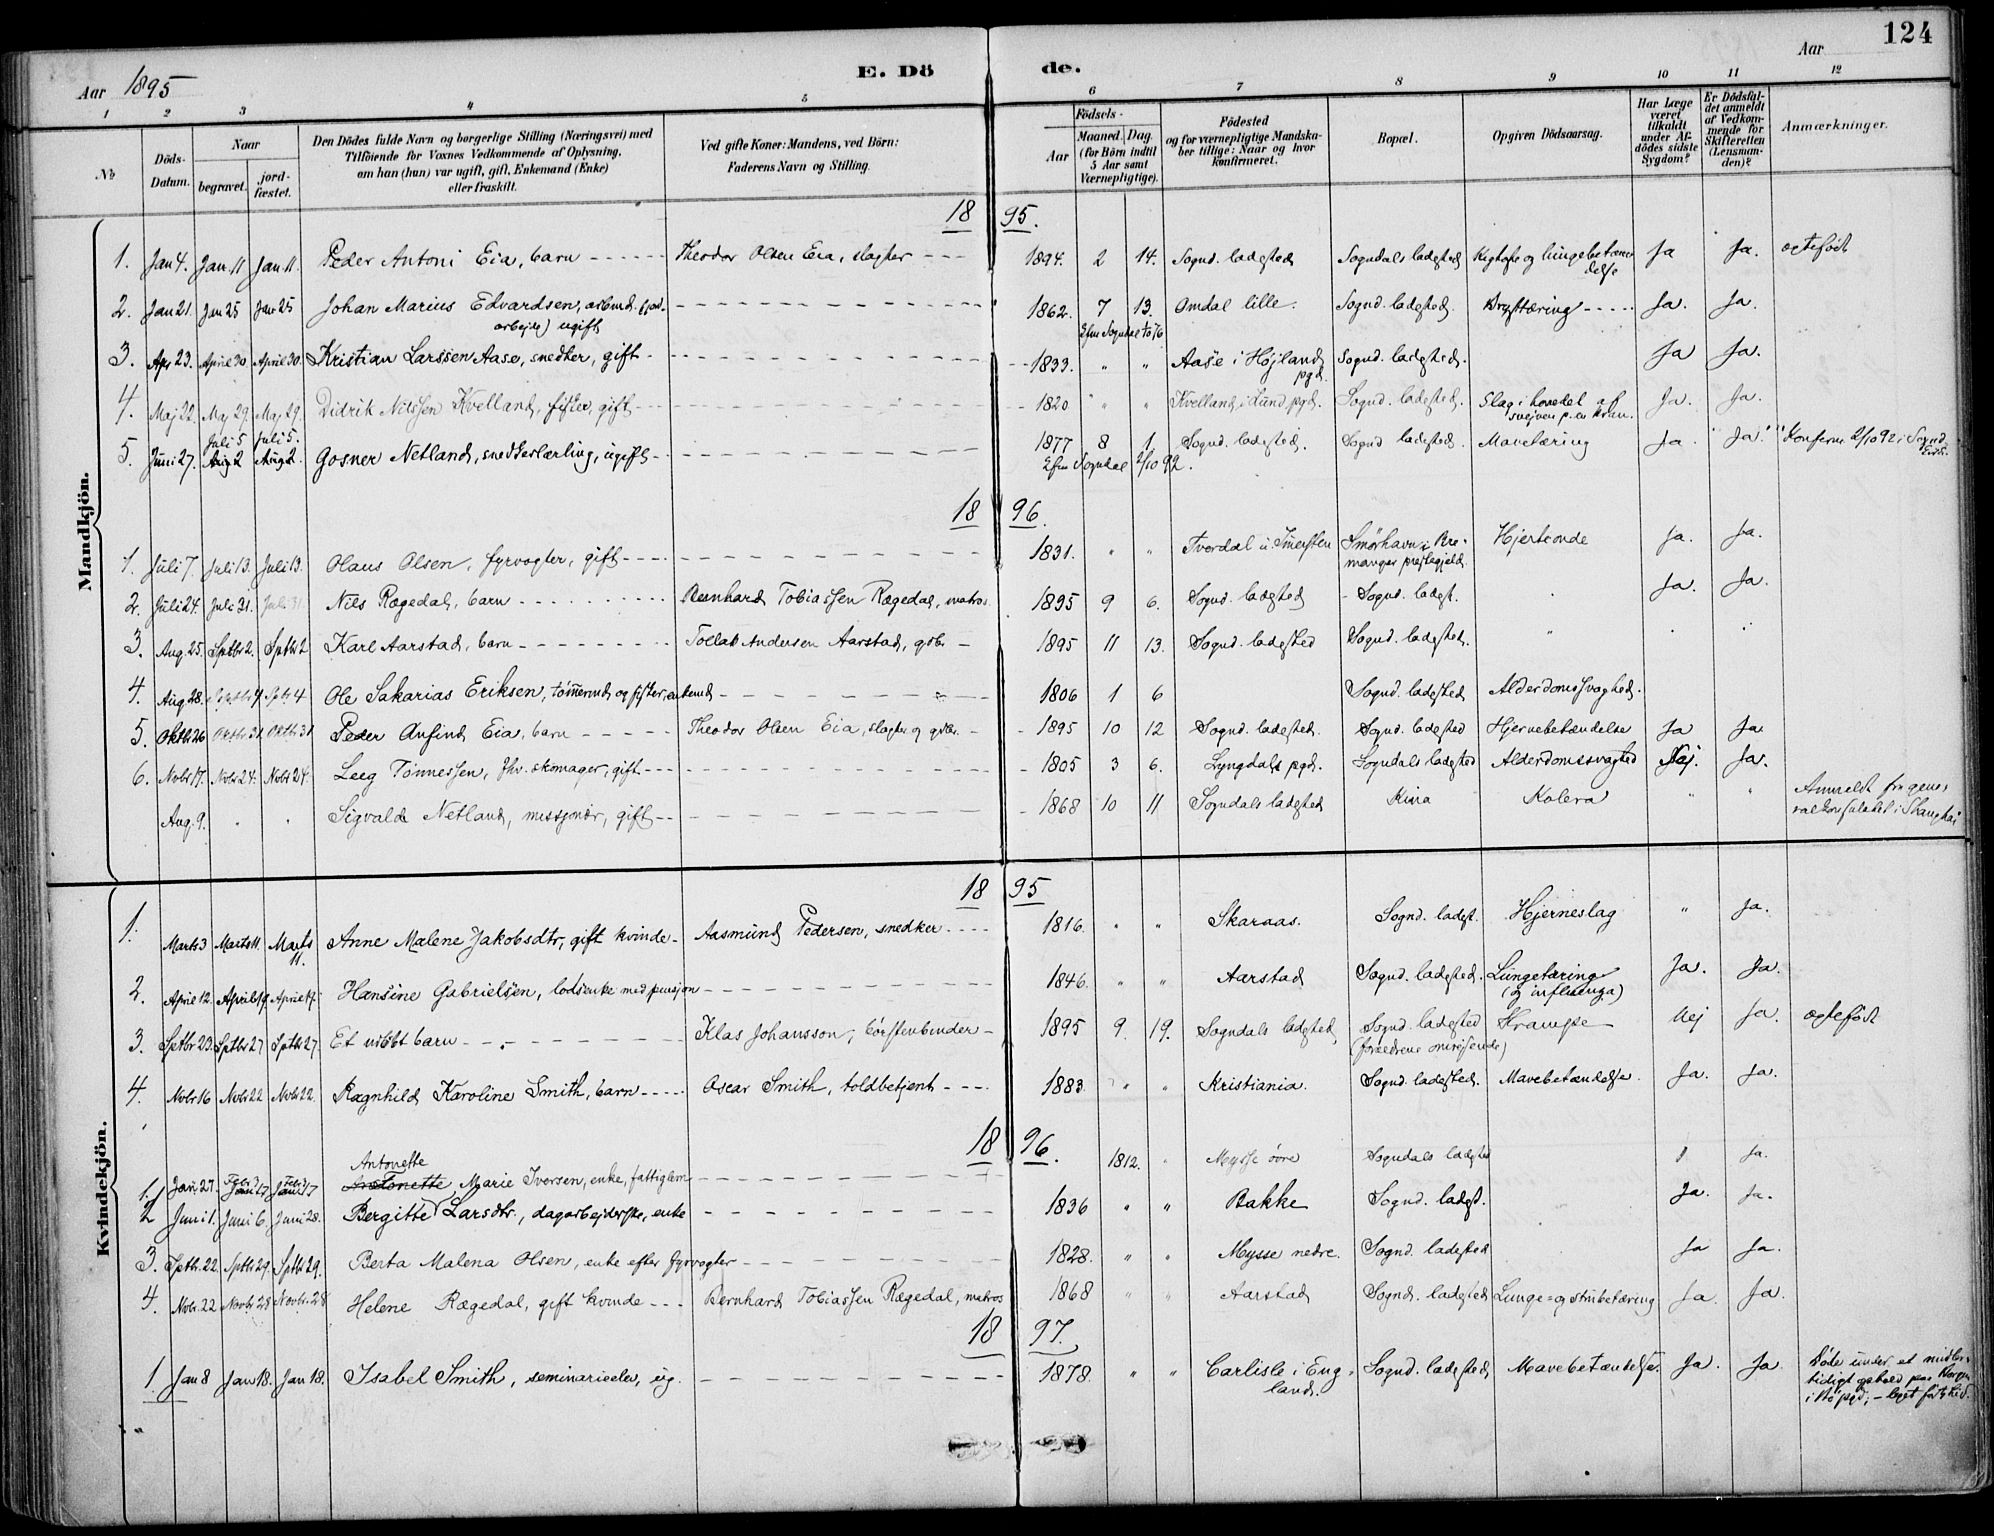 124
Aar 1895
E. Dö de.
Aar
1 2 3 4 5 6 7 8 9 10 11 12
No
Döds-Datum.
Naar
begravet.
jord-fæstet.
Den Dödes fulde Navn og borgerlige Stilling (Næringsvei) med
Tilföiende for Voxnes Vedkommende af Oplysning,
om han (hun) var ugift, gift, Enkemand (Enke)
eller fraskilt.
Ved gifte Koner: Mandens, ved Börn:
Faderens Navn og Stilling.
Födsels-
Aar
Maaned. Dag.
(for Börn indtil
5 Aar samt
Værnepligtige).
Födested
og for værnepligtige Mandska-
ber tillige: Naar og hvor
konfirmeret.
Bopæl.
Opgiven Dödsaarsag.
Har Læge
været
tilkaldt
under Af-
dödes sidste
Sygdom?
Er Dödsfal-
det anmeldt
af Vedkom-
mende for
Skifteretten
(Lensman-
den)?
Anmærkninger.
Mandkjön.
18 95.
1. Jan 4. Jan 11 Jan 11. Peder Antoni Eia, barn Theodor Olsen Eia, slagter 1894. 2 14. Sognd. ladested Sogndals ladested Kighoste og lungebetæn-
delse Ja Ja. ægtefödt
2. Jan 21. Jan 25 Jan 25 Johan Marius Edvardsen, 1862. 7 13. Omdal lille. Sognd. ladested. Brysttæring Ja. Ja.
arbejde) ugift
3. Apr 23. April 30 April 30. Kristian Larssen Aase, snedker, gift 1833. " " Aase i Højland Sognd. ladested. Ja Ja.
pgd.
4. Maj 22. Maj 29. Maj 29. Didrik Nilssen Kvelland, fisker, gift 1820 " " Kvelland i Lund pgd. Sognd. ladested. Slag i hovedet af
svejven p. en kran. Ja. Ja.
Juli 5 Juli 5.
5. Juni 27. Aug 2 Aug 2. Gosner Netland, snedkerlærling, ugift 1877 8 1. Sognd. ladested. Sognd ladested. Mavetæring Ja. Ja. Konferm. 2/10 92 i Sognd.
Sogndal 2/10 92.
18 96.
1. Juli 7. Juli 13. Juli 13. Olaus Olsen, fyrvogter, gift 1831. " " Tverdal Smörhavn i Bre-
manger prestegjeld. Hjerteonde Ja. Ja.
2. Juli 24. Juli 31. Juli 31. Nils Rægedal, barn Bernhard Tobiassen Rægedal, matros. 1895 9 6. Sognd. ladested Sognd. ladst. Ja. Ja.
3. Aug. 25. Sptbr 2. Sptbr 2 Karl Aarstad, barn Tollak Andersen Aarstad, gdbr. 1895 11 13. Sognd. ladested Sognd. ladested.
4. Aug 28. Septbr 4 Sptbr 4 Ole Sakarias Eriksen, tømmermd og fisker, enkemd 1806 1 6 Sognd. ladested Alderdomssvaghed.
5. Oktbr 26 Oktbr 31 Oktbr 31 Peder Anfind Eia, barn Theodor Olsen Eia, slagter og gdbr. 1895 10 12 Sognd. ladested. Sognd. ladested Hjernebetændelse Ja Ja
6. Novbr 17. Nvbr 24. Nvbr 24. Leeg Tønnessen, fhv. skomager, gift 1805 3 6. Lyngdals pgd. Sogndals ladested Alderdomssvaghed Nej. Ja.
Aug. 9. Sigvald Netland, missjonær, gift 1868 10 11 Sogndals ladested Kina Kolera " " Anmeldt fra gene-
ralkonsulatet i Skanghai
Kvindekjön.
18 95
1. Marts 3 Marts 11. Marts
11. Anne Malene Jakobsdtr, gift kvinde Aasmund Pedersen, snedker 1816. " " Skaraas. Sognd. ladst. Hjerneslag " Ja.
2. April 12. April 17. April 17. Hansine Gabrielsen, lodsenke med pensjon 1846. " " Aarstad Sognd. ladested. Lungetæring
(og influenza) Ja. Ja.
3. Sptbr 23. Sptbr 27 Sptbr 27. Et udöbt barn Klas Johansson, børstenbinder 1895 9. 19. Sogndals ladested Sognd. ladested
(forældrene omrejsende) Krampe Nej Ja. ægtefödt
4. Nvbr 16 Nvbr 22 Nvbr 22. Ragnhild Karoline Smith, barn Oscar Smith, toldbetjent 1883. " " Kristiania. Sognd. ladested. Mavebetændelse. Ja. Ja.
18 96.
Antonette
1. Jan. 27. Marie Iversen, enke, fattiglem 1812. " Mysse övre Sogndals ladested " Ja.
2 Juni 1. Juni 6. Juni 28. Bergitte Larsdtr., dagarbejderske, enke 1836 " " Bakke Sognd. ladst. Ja. Ja.
3. Sptbr. 22. Sptbr 29. Sptbr 29. Berta Malena Olsen, enke efter fyrvogter 1828. " " Mysse nedre. Sognd. ladested Ja Ja.
4. Nvbr. 22 Novbr 28 Novbr. 28 Helene Rægedal, gift kvinde Bernhard Tobiassen Rægedal, matros 1868 " " Aarstad Sognd. ladested Lunge- og strubetæring Ja. Ja.
18 97.
1. Jan 8 Jan 18. Jan 18. Isabel Smith, seminarieelev, ug. 1878. " " Carlisle i Eng-
land. Sognd. ladested Mavebetændelse. Ja. Ja Döde under et midler-
tidigt ophold paa